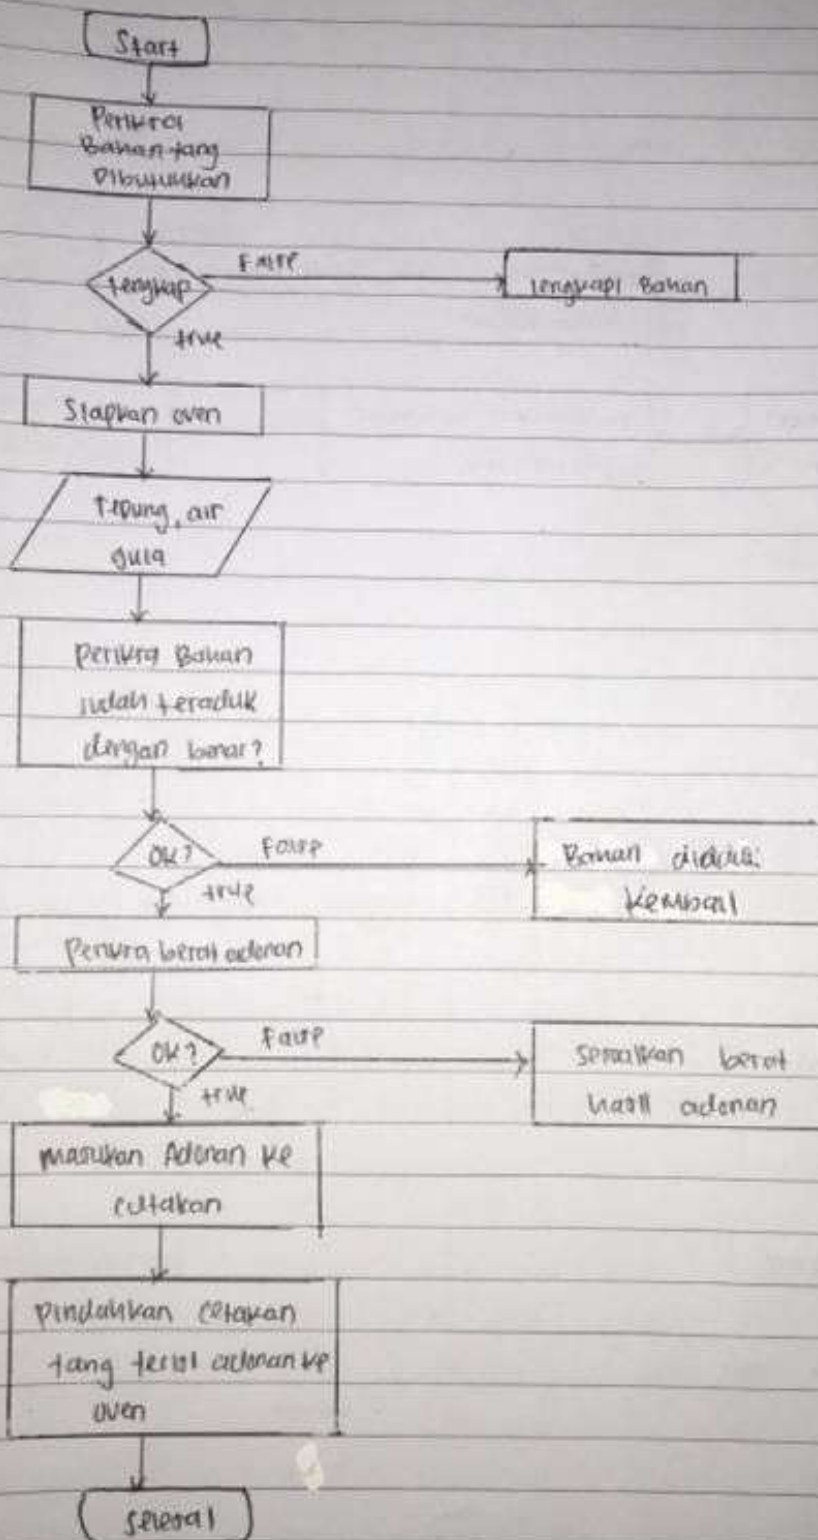 Start
Periksa
Bahan yang
Dibutuhkan
lengkap
False
lengkapi Bahan
true
Siapkan oven
Tepung, air
gula
Periksa Bahan
sudah teraduk
dengan benar?
OK?
False
Bahan diaduk
Kembali
true
Periksa berat adonan
OK?
False
Sesuaikan berat
hasil adonan
true
masukan Adonan ke
cetakan
Pindahkan cetakan
yang terisi adonan ke
oven
selesai